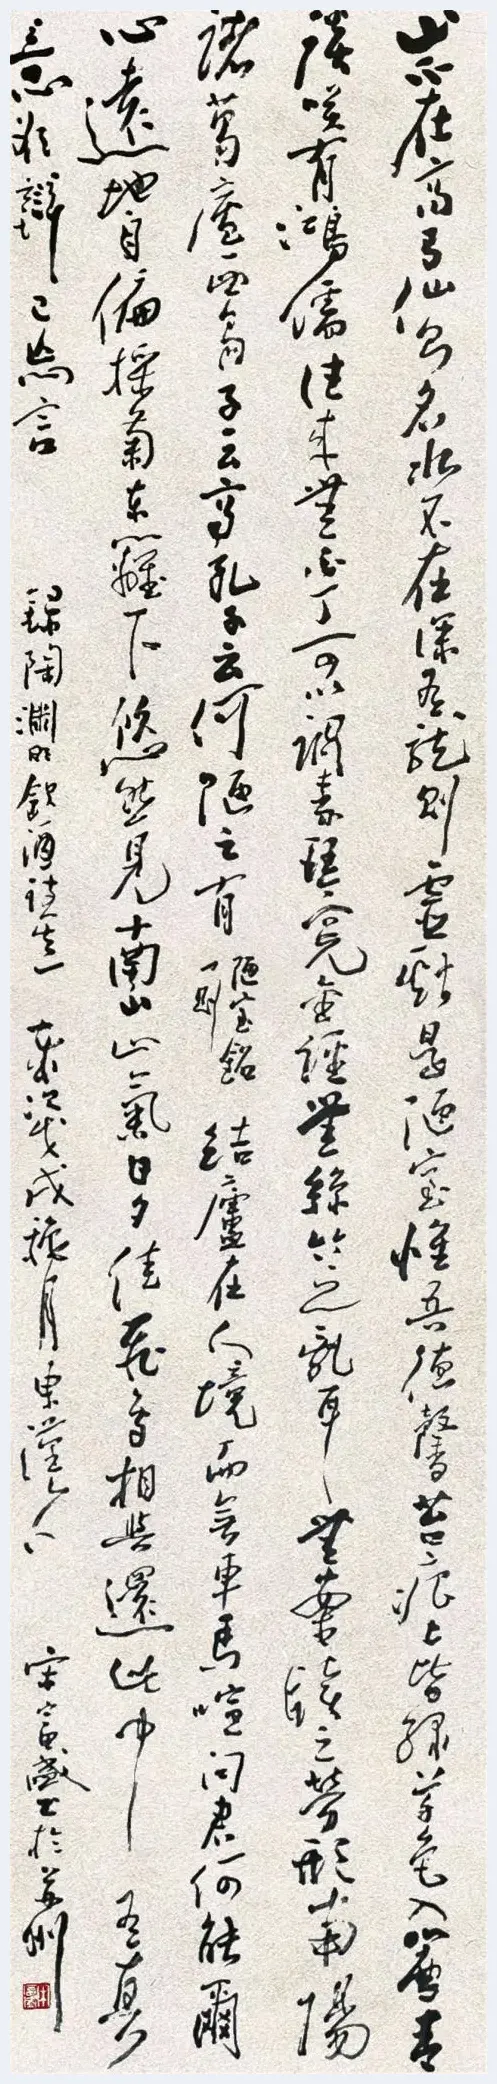 山不在高有仙則名水不在深有龍則靈斯是陋室惟吾德馨苔痕上階綠草色入簾青
談笑有鴻儒往來無白丁可以調素琴閱金經無絲竹之亂耳無案牘之勞形南陽
諸葛廬西蜀子云亭孔子云何陋之有 陋室銘一則 結廬在人境而無車馬喧問君何能爾
心遠地自偏採菊東籬下悠然見南山山氣日夕佳飛鳥相與還此中有真
意欲辯已忘言 錄陶淵明飲酒詩 歲次戊戌 月東 宋富盛書於蘇州